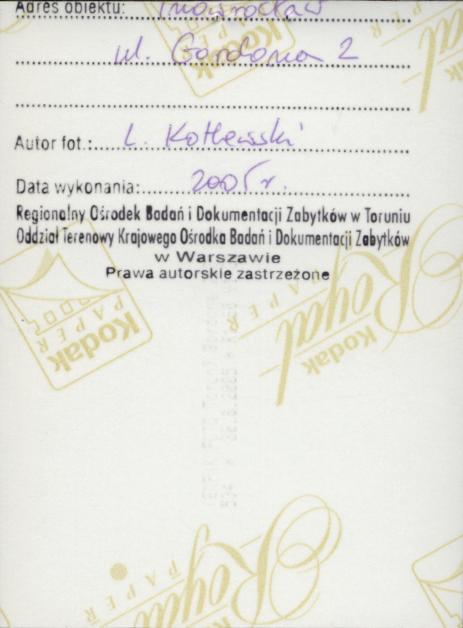 Adres obiektu: Inowrocław
ul. Gordona 2
Autor fot.: L. Kotlewski
Data wykonania: 2005 r.
Regionalny Ośrodek Badań i Dokumentacji Zabytków w Toruniu
Oddział Terenowy Krajowego Ośrodka Badań i Dokumentacji Zabytków
w Warszawie
Prawa autorskie zastrzeżone
Kodak
Royal
PAPER
Kodak
PAPER
Kodak
Royal
PAPER